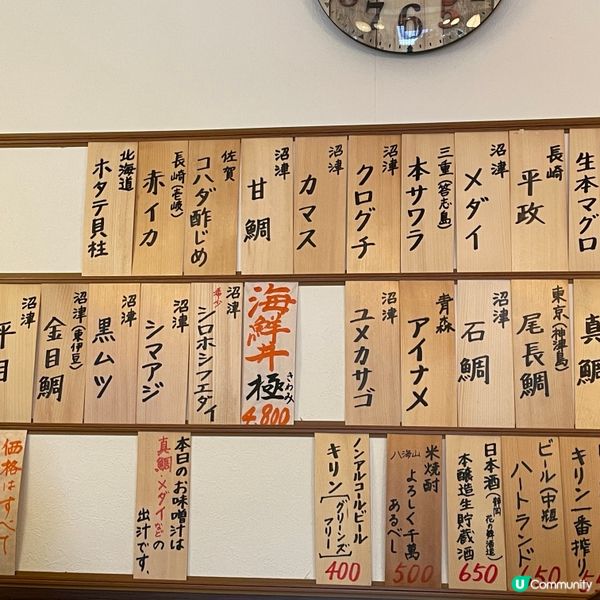 7
6
5
生本マグロ
長崎
平政
沼津
メダイ
三重(答志島)
本サワラ
沼津
クログチ
沼津
カマス
沼津
甘鯛
佐賀
コハダ酢じめ
長崎(壱岐)
赤イカ
北海道
ホタテ貝柱
真鯛
東京(神津島)
尾長鯛
沼津
石鯛
青森
アイナメ
沼津
ユメカサゴ
海鮮丼
極
きわみ
4,800
沼津
希少
シロホシフエダイ
沼津
シマアジ
沼津
黒ムツ
沼津(東伊豆)
金目鯛
沼津
平目
キリン一番搾り
ビール(中瓶)
ハートランド
650
日本酒(静岡 花の舞酒造)
本醸造生貯蔵酒
650
米焼酎
八海山 よろしく千萬
あるべし
500
ノンアルコールビール
キリン[グリーンズ
フリー]
400
本日のお味噌汁は
真鯛・メダイなどの
出汁です。
価格はすべて
U Community